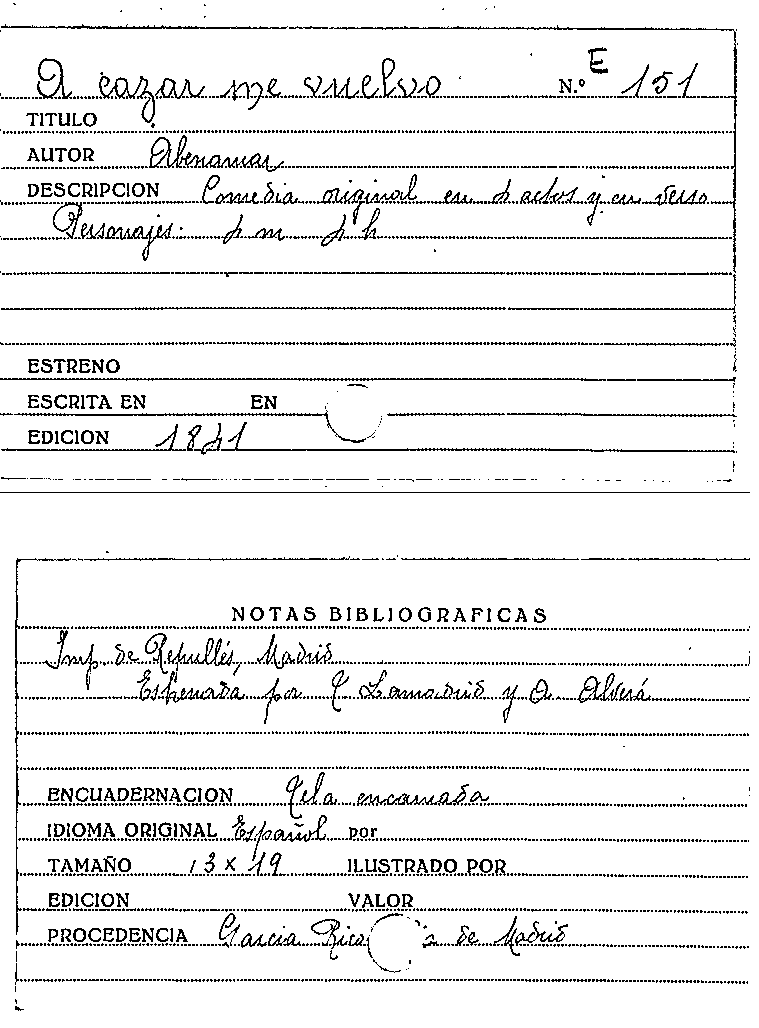 A cazar me vuelvo N.º E 151
TITULO
AUTOR Abenamar
DESCRIPCION Comedia original en 4 actos y en verso
Personajes: 4 m 4 h
ESTRENO
ESCRITA EN EN
EDICION 1841
NOTAS BIBLIOGRAFICAS
Imp. de Repullés, Madrid
Estrenada por T Lamadrid y A. Alverá
ENCUADERNACION Tela encarnada
IDIOMA ORIGINAL Español por
TAMAÑO 13 x 19 ILUSTRADO POR
EDICION VALOR
PROCEDENCIA Garcia Rico de Madrid